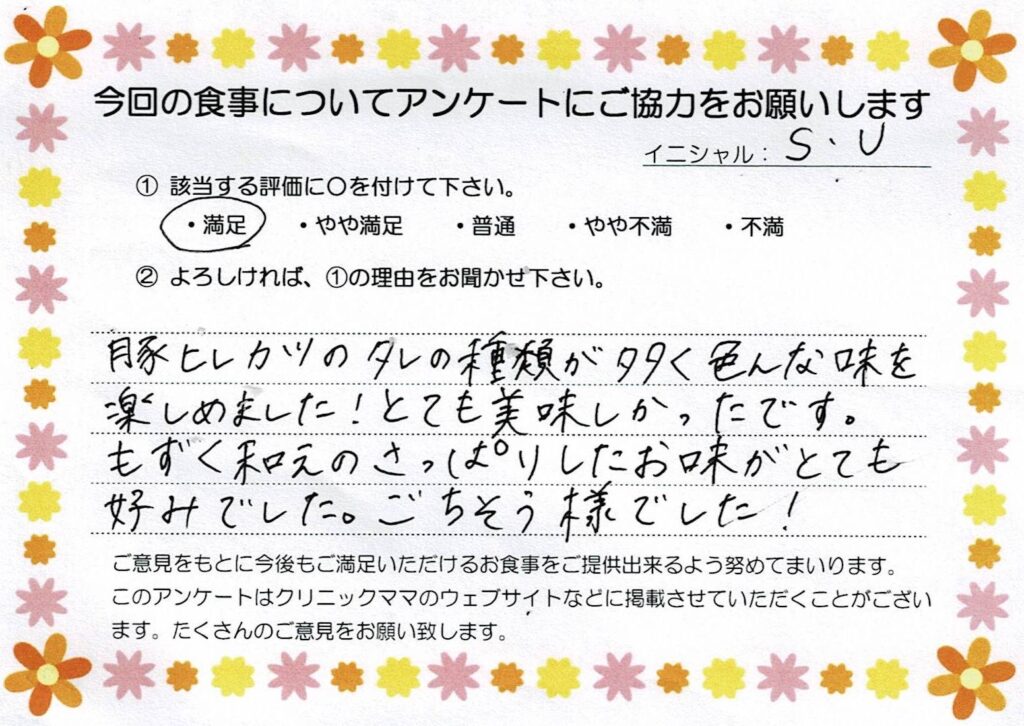 今回の食事についてアンケートにご協力をお願いします
イニシャル: S.U
① 該当する評価に〇を付けて下さい。
・満足 ・やや満足 ・普通 ・やや不満 ・不満
② よろしければ、①の理由をお聞かせ下さい。
豚ヒレカツのタレの種類が多く色んな味を
楽しめました!とても美味しかったです。
もずく和えのさっぱりしたお味がとても
好みでした。ごちそう様でした!
ご意見をもとに今後もご満足いただけるお食事をご提供出来るよう努めてまいります。
このアンケートはクリニックママのウェブサイトなどに掲載させていただくことがござい
ます。たくさんのご意見をお願い致します。